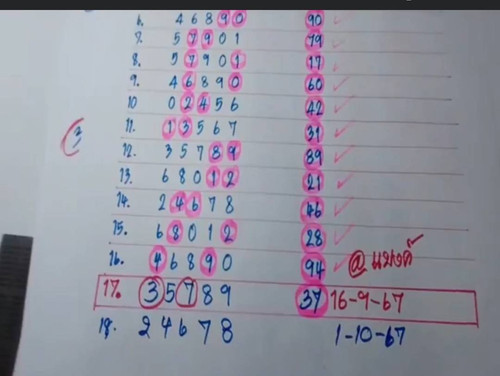 6. 4 6 8 9 0 90
7. 5 7 9 0 1 79
8. 5 7 9 0 1 17
9. 4 6 8 9 0 60
10 0 2 4 5 6 42
11. 1 3 5 6 7 31
3
12. 3 5 7 8 9 89
13. 6 8 0 1 2 21
14. 2 4 6 7 8 46
15. 6 8 0 1 2 28
16. 4 6 8 9 0 94 @แบงค์
17. 3 5 7 8 9 37 16-9-67
18. 2 4 6 7 8 1-10-67